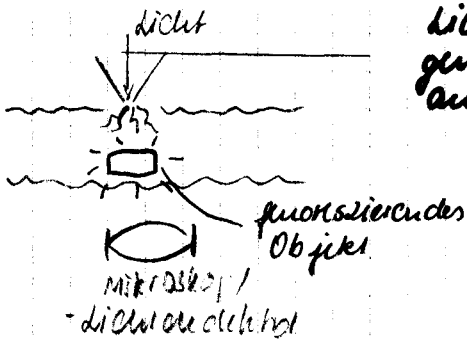 Licht
fluoreszierendes
Objekt
Mikroskop/
-Lichtdetektor